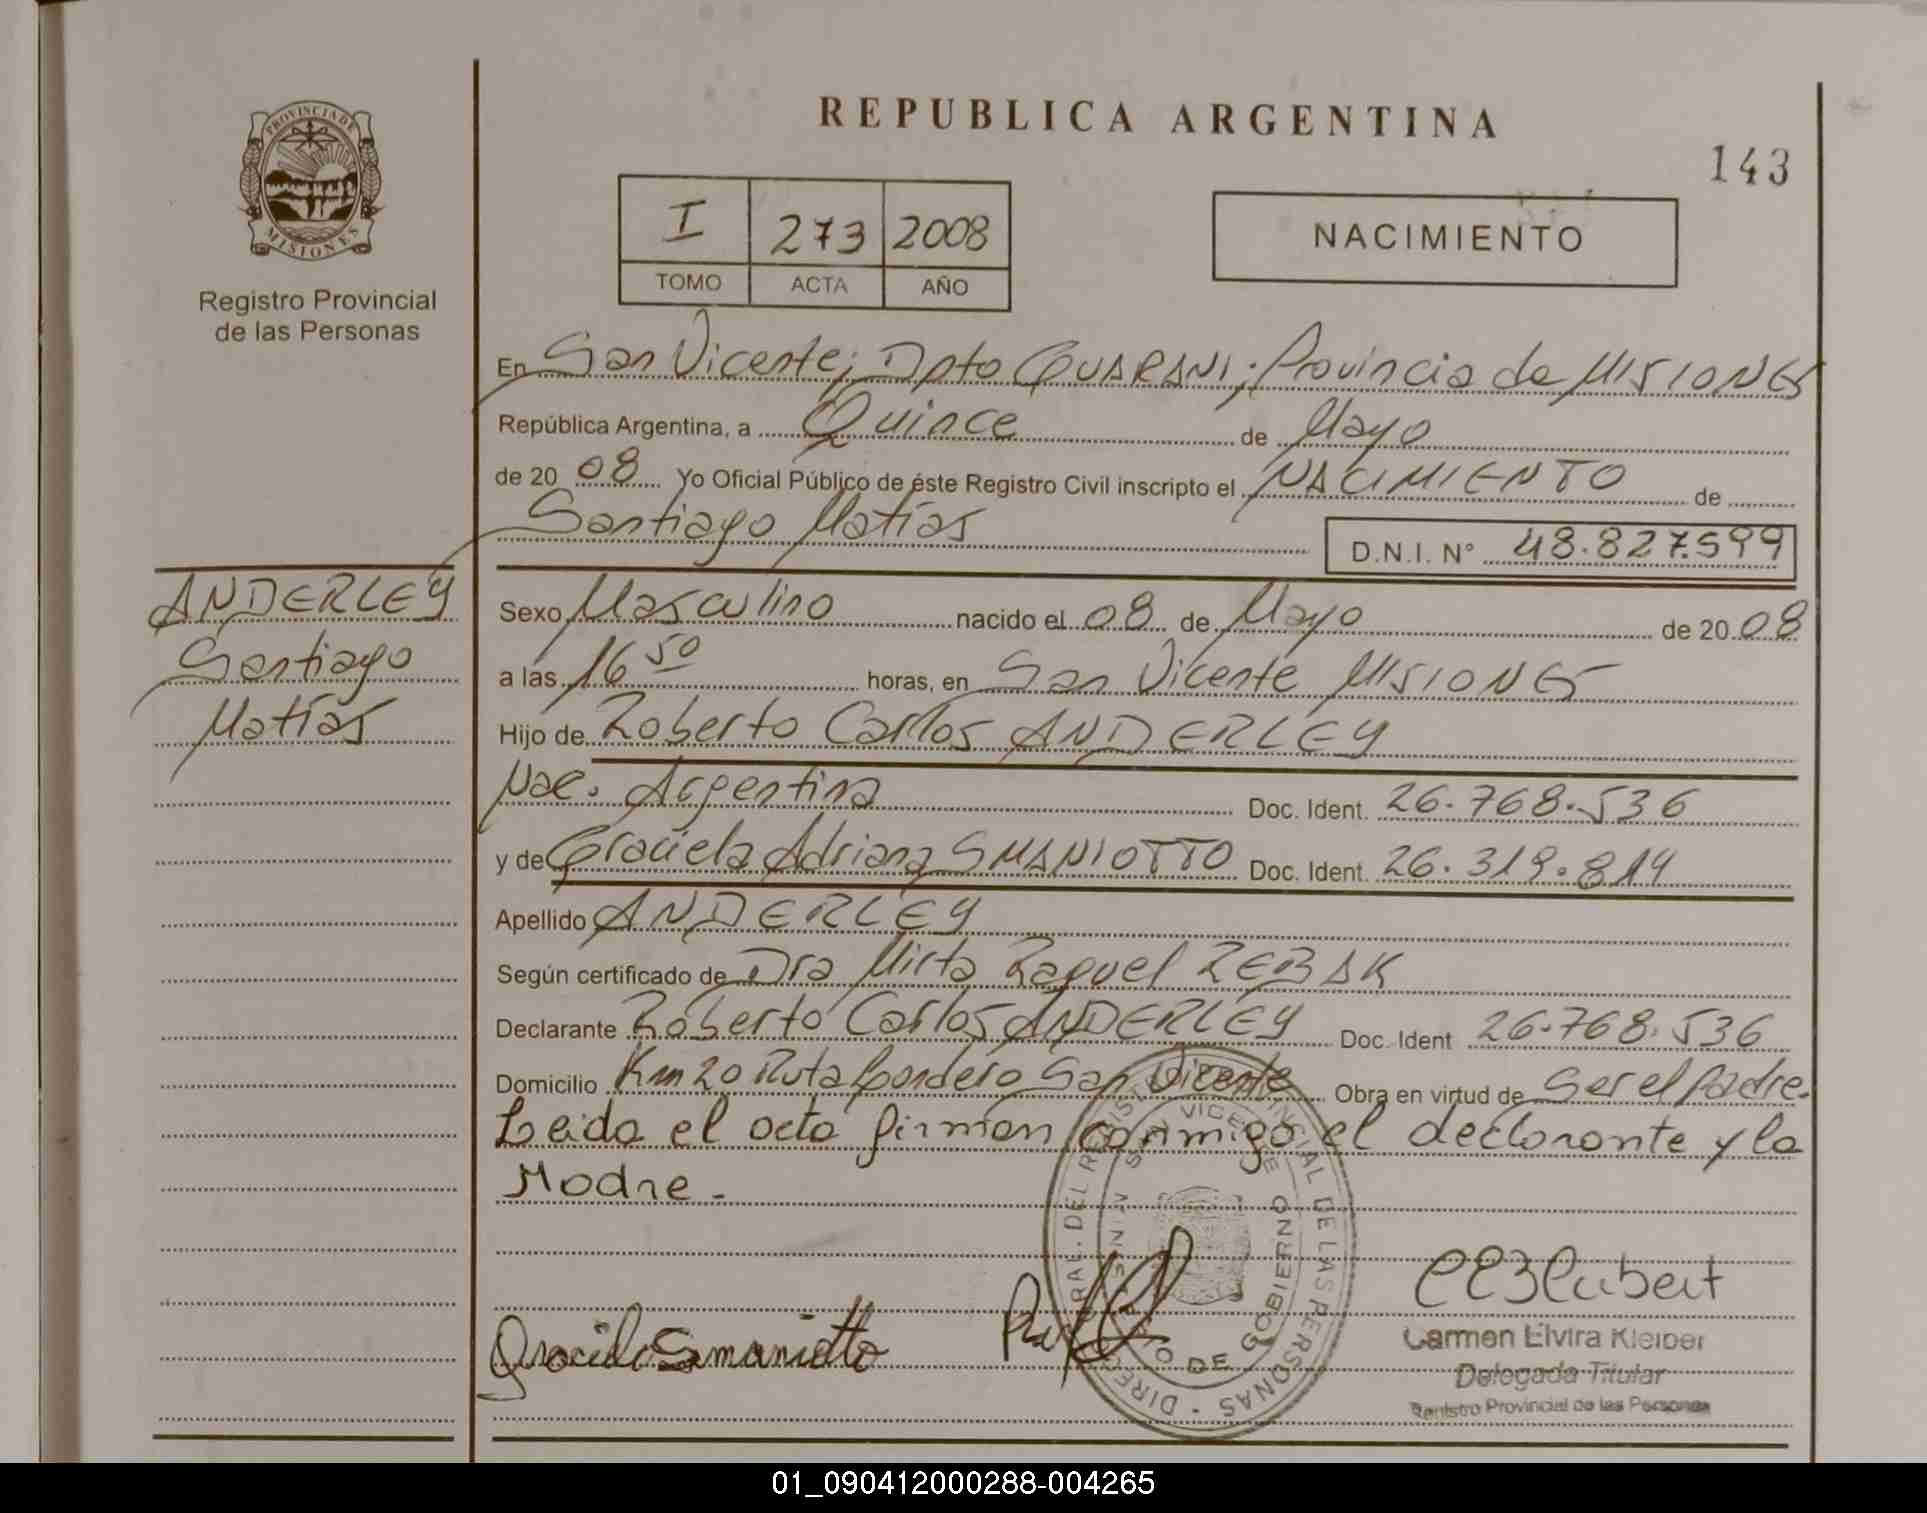 PROVINCIA DE
MISIONES
Registro Provincial
de las Personas
REPUBLICA ARGENTINA
143
I 273 2008
TOMO ACTA AÑO
NACIMIENTO
En San Vicente; Dpto GUARANI; Provincia de MISIONES
República Argentina, a Quince de Mayo
de 20 08 Yo Oficial Público de éste Registro Civil inscripto el NACIMIENTO de
Santiago Matías D.N.I. N° 48.827.599
ANDERLEY
Santiago
Matías
Sexo Masculino nacido el 08 de Mayo de 20 08
a las 16 50 horas, en San Vicente MISIONES
Hijo de Roberto Carlos ANDERLEY
Nac. Argentina Doc. Ident. 26.768.536
y de Graciela Adriana SMANIOTTO Doc. Ident. 26.319.814
Apellido ANDERLEY
Según certificado de Dra Mirta Raquel REBAK
Declarante Roberto Carlos ANDERLEY Doc. Ident 26.768.536
Domicilio Km 20 Ruta Bordero San Vicente Obra en virtud de Ser el Padre.
Leida el acta firman conmigo el declarante y la
Madre.
Graciela Smaniotto
Carmen Elvira Kleiber
Delegada Titular
Registro Provincial de las Personas
01_090412000288-004265